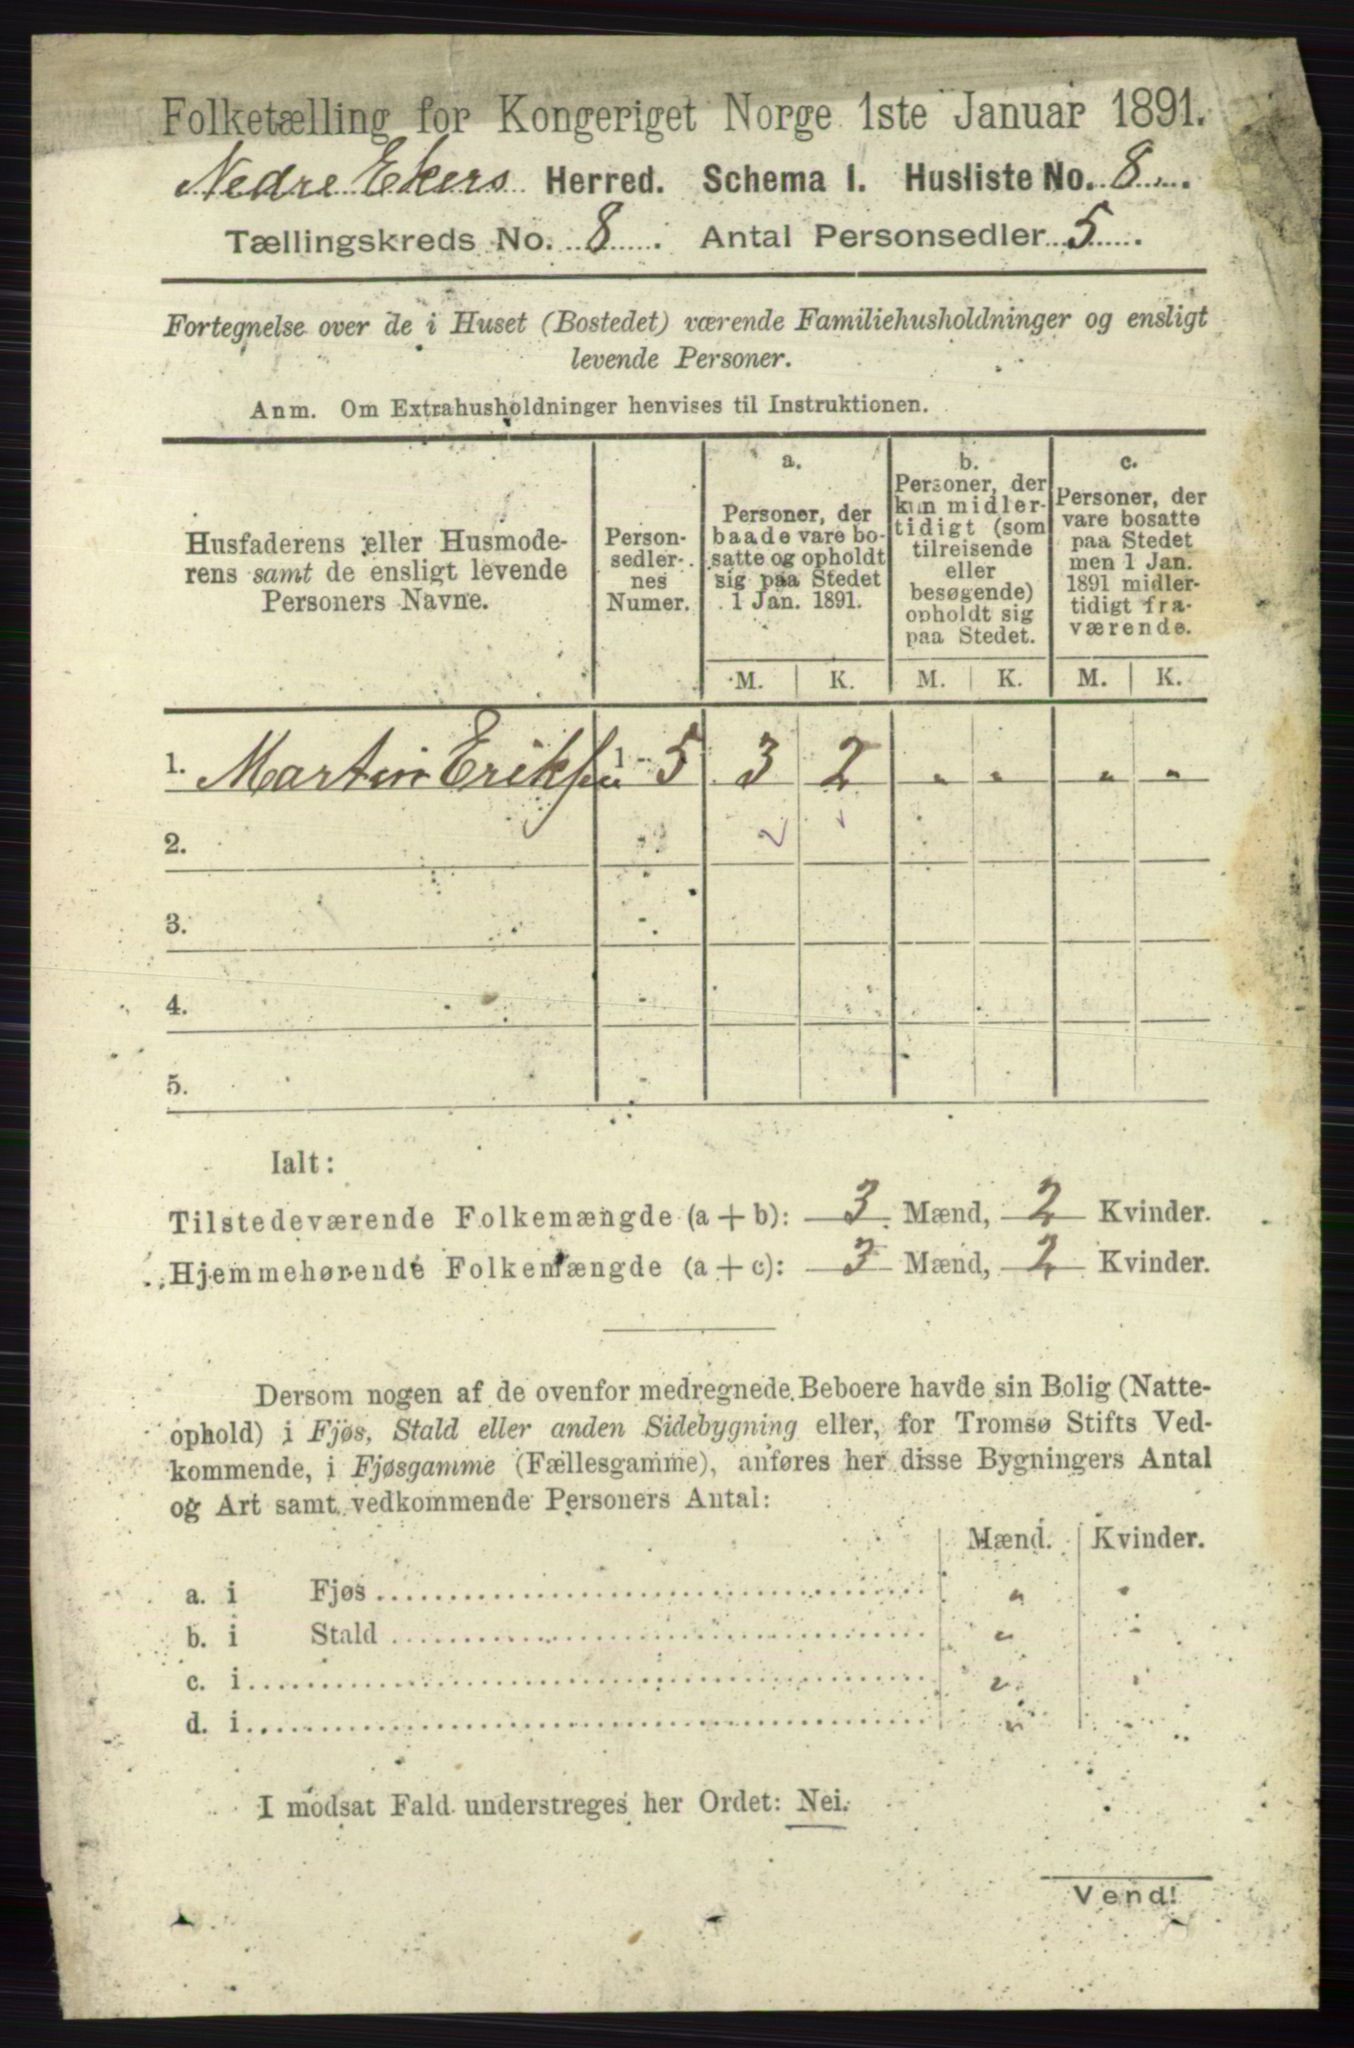 Folketælling for Kongeriget Norge 1ste Januar 1891.
Nedre Ekers Herred. Schema 1. Husliste No. 8
Tællingskreds No. 8. Antal Personsedler 5.
Fortegnelse over de i Huset (Bostedet) værende Familiehusholdninger og ensligt
levende Personer.
Anm. Om Extrahusholdninger henvises til Instruktionen.
Husfaderens eller Husmode-
rens samt de ensligt levende
Personers Navne.
Person-
sedler-
nes
Numer.
a.
Personer, der
baade vare bo-
satte og opholdt
sig paa Stedet
1 Jan. 1891.
b.
Personer, der
kun midler-
tidigt (som
tilreisende
eller
besøgende)
opholdt sig
paa Stedet.
c.
Personer, der
vare bosatte
paa Stedet
men 1 Jan.
1891 midler-
tidigt fra-
værende.
M. K. M. K. M. K.
1. Martin Eriksen 1 - 5 3 2 " " " "
2. -
3. -
4. -
5. -
Ialt:
Tilstedeværende Folkemængde (a + b): 3 Mænd, 2 Kvinder.
Hjemmehørende Folkemængde (a + c): 3 Mænd, 2 Kvinder.
Dersom nogen af de ovenfor medregnede Beboere havde sin Bolig (Natte-
ophold) i Fjøs, Stald eller anden Sidebygning eller, for Tromsø Stifts Ved-
kommende, i Fjøsgamme (Fællesgamme), anføres her disse Bygningers Antal
og Art samt vedkommende Personers Antal:
Mænd. Kvinder.
a. i Fjøs " "
b. i Stald " "
c. i " "
d. i " "
I modsat Fald understreges her Ordet: Nei.
Vend!